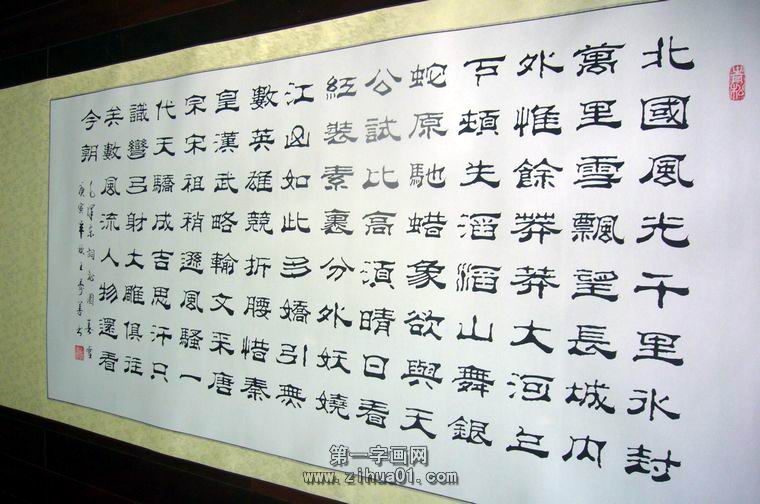 北國風光千里冰封
萬里雪飄望長城內
外惟餘莽莽大河上
下頓失滔滔山舞銀
蛇原馳蜡象欲與天
公試比高須晴日看
紅裝素裹分外妖嬈
江山如此多嬌引無
數英雄競折腰惜秦
皇漢武略輸文采唐
宗宋祖稍遜風騷一
代天驕成吉思汗只
識彎弓射大雕俱往
矣數風流人物還看
今朝
毛澤東詞沁園春雪
庚寅年
第一字画网
www.zihua01.com